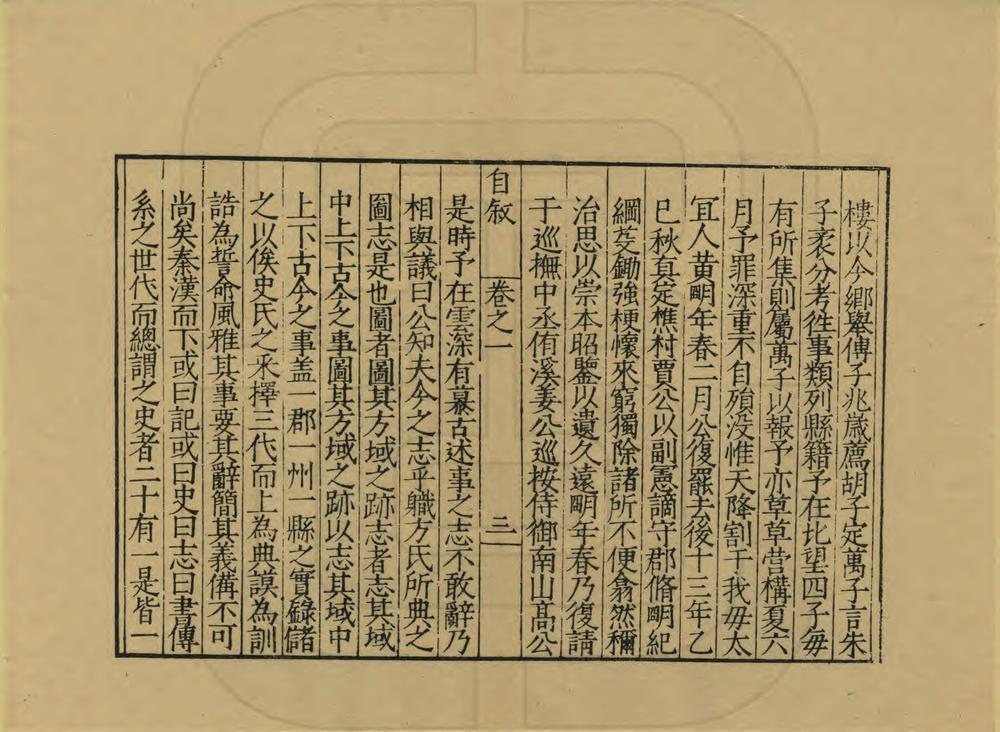 樓以今鄉舉傳子兆歲薦胡子定萬子言朱
子衮分考徃事類列縣籍予在比望四子每
有所集則屬萬子以報予亦草草营構夏六
月予罪深重不自殞没惟天降割于我毋太
冝人黄明年春二月公復罷去後十三年乙
巳秋真定樵村賈公以副憲謫守郡脩明紀
綱芟鋤強梗懷來窮獨除諸所不便翕然稱
治思以崇本昭鑒以遺久遠明年春乃復請
于巡撫中丞侑溪姜公巡按侍御南山高公
自叙 卷之一 三
是時予在雲深有慕古述事之志不敢辭乃
相與議曰公知夫今之志乎職方氏所典之
圖志是也圖者圖其方域之跡志者志其域
中上下古今之事圖其方域之跡以志其域中
上下古今之事盖一郡一州一縣之實錄儲
之以俟史氏之采擇三代而上為典謨為訓
誥為誓命風雅其事要其辭簡其義備不可
尚矣秦漢而下或曰記或曰史曰志曰書傳
系之世代而總謂之史者二十有一是皆一